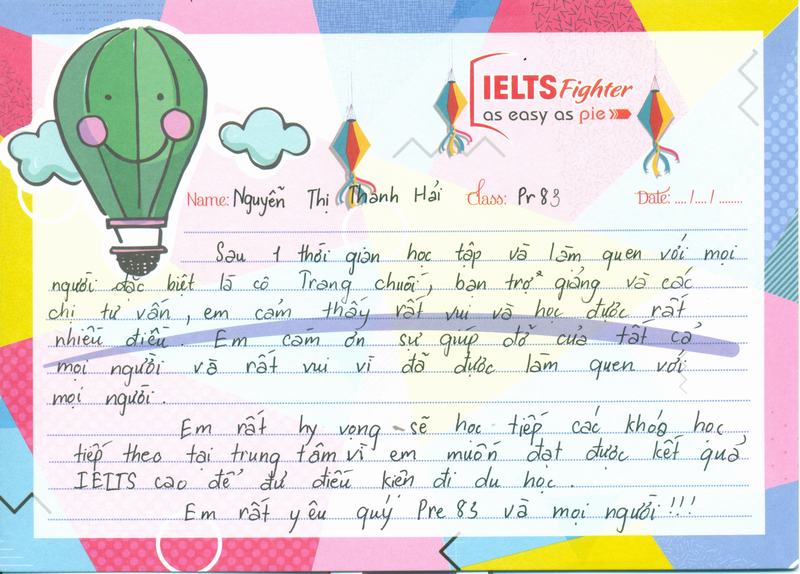 IELTS Fighter
as easy as pie
Name: Nguyễn Thị Thanh Hải Class: Pr 83 Date: .... /.... / ........
Sau 1 thời gian học tập và làm quen với mọi
người đặc biệt là cô Trang chuối, bạn trợ giảng và các
chị tư vấn, em cảm thấy rất vui và học được rất
nhiều điều. Em cảm ơn sự giúp đỡ của tất cả
mọi người và rất vui vì đã được làm quen với
mọi người.
Em rất hy vọng sẽ học tiếp các khóa học
tiếp theo tại trung tâm vì em muốn đạt được kết quả
IELTS cao để đủ điều kiện đi du học.
Em rất yêu quý Pre 83 và mọi người!!!